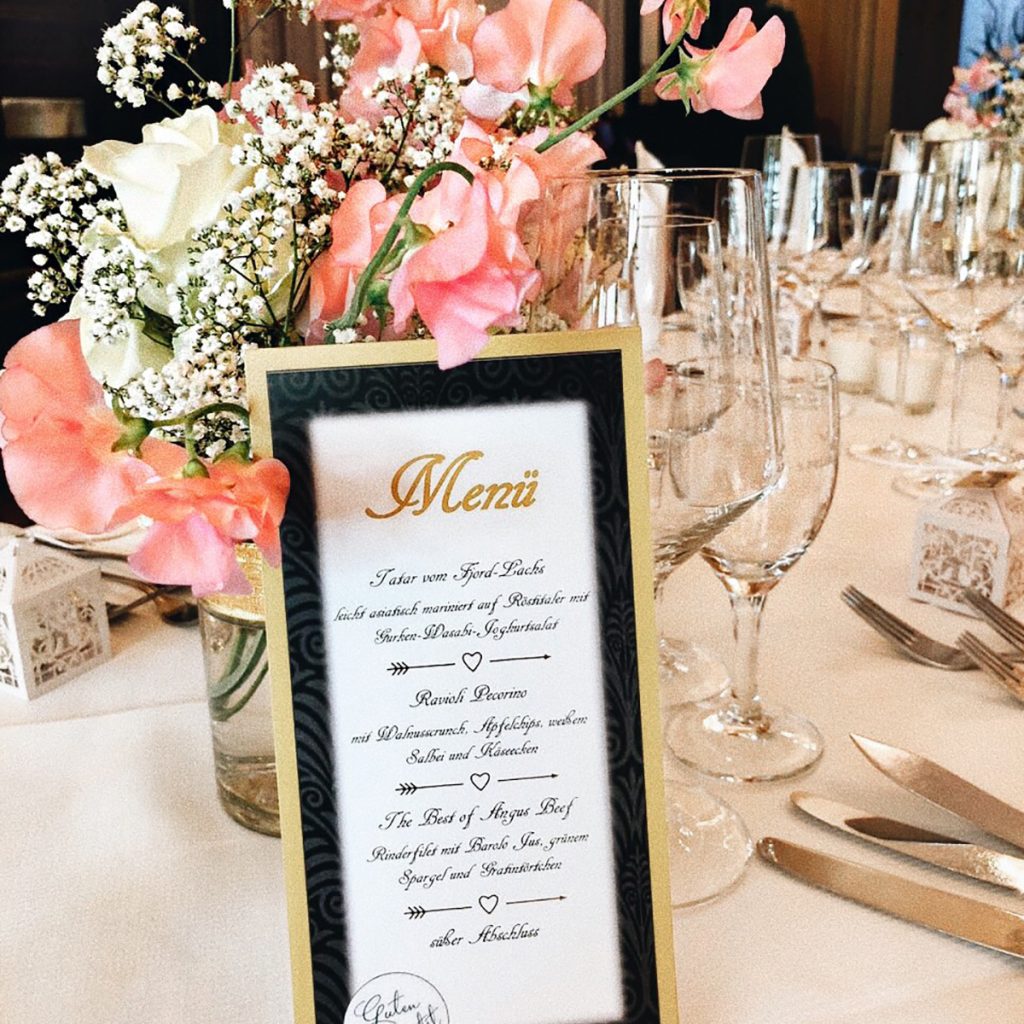 Menü
Tatar vom Fjord-Lachs
leicht asiatisch mariniert auf Röstitaler mit
Gurken-Wasabi-Joghurtsalat
Ravioli Pecorino
mit Walnusscrunch, Apfelchips, weißem
Salbei und Käseecken
The Best of Angus Beef
Rinderfilet mit Barolo Jus, grünem
Spargel und Gratintörtchen
süßer Abschluss
Guten